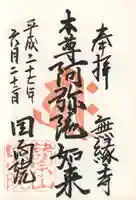 奉拝
無縁寺
本尊阿弥陀如来
平成二十七年
六月二十二日
回向院